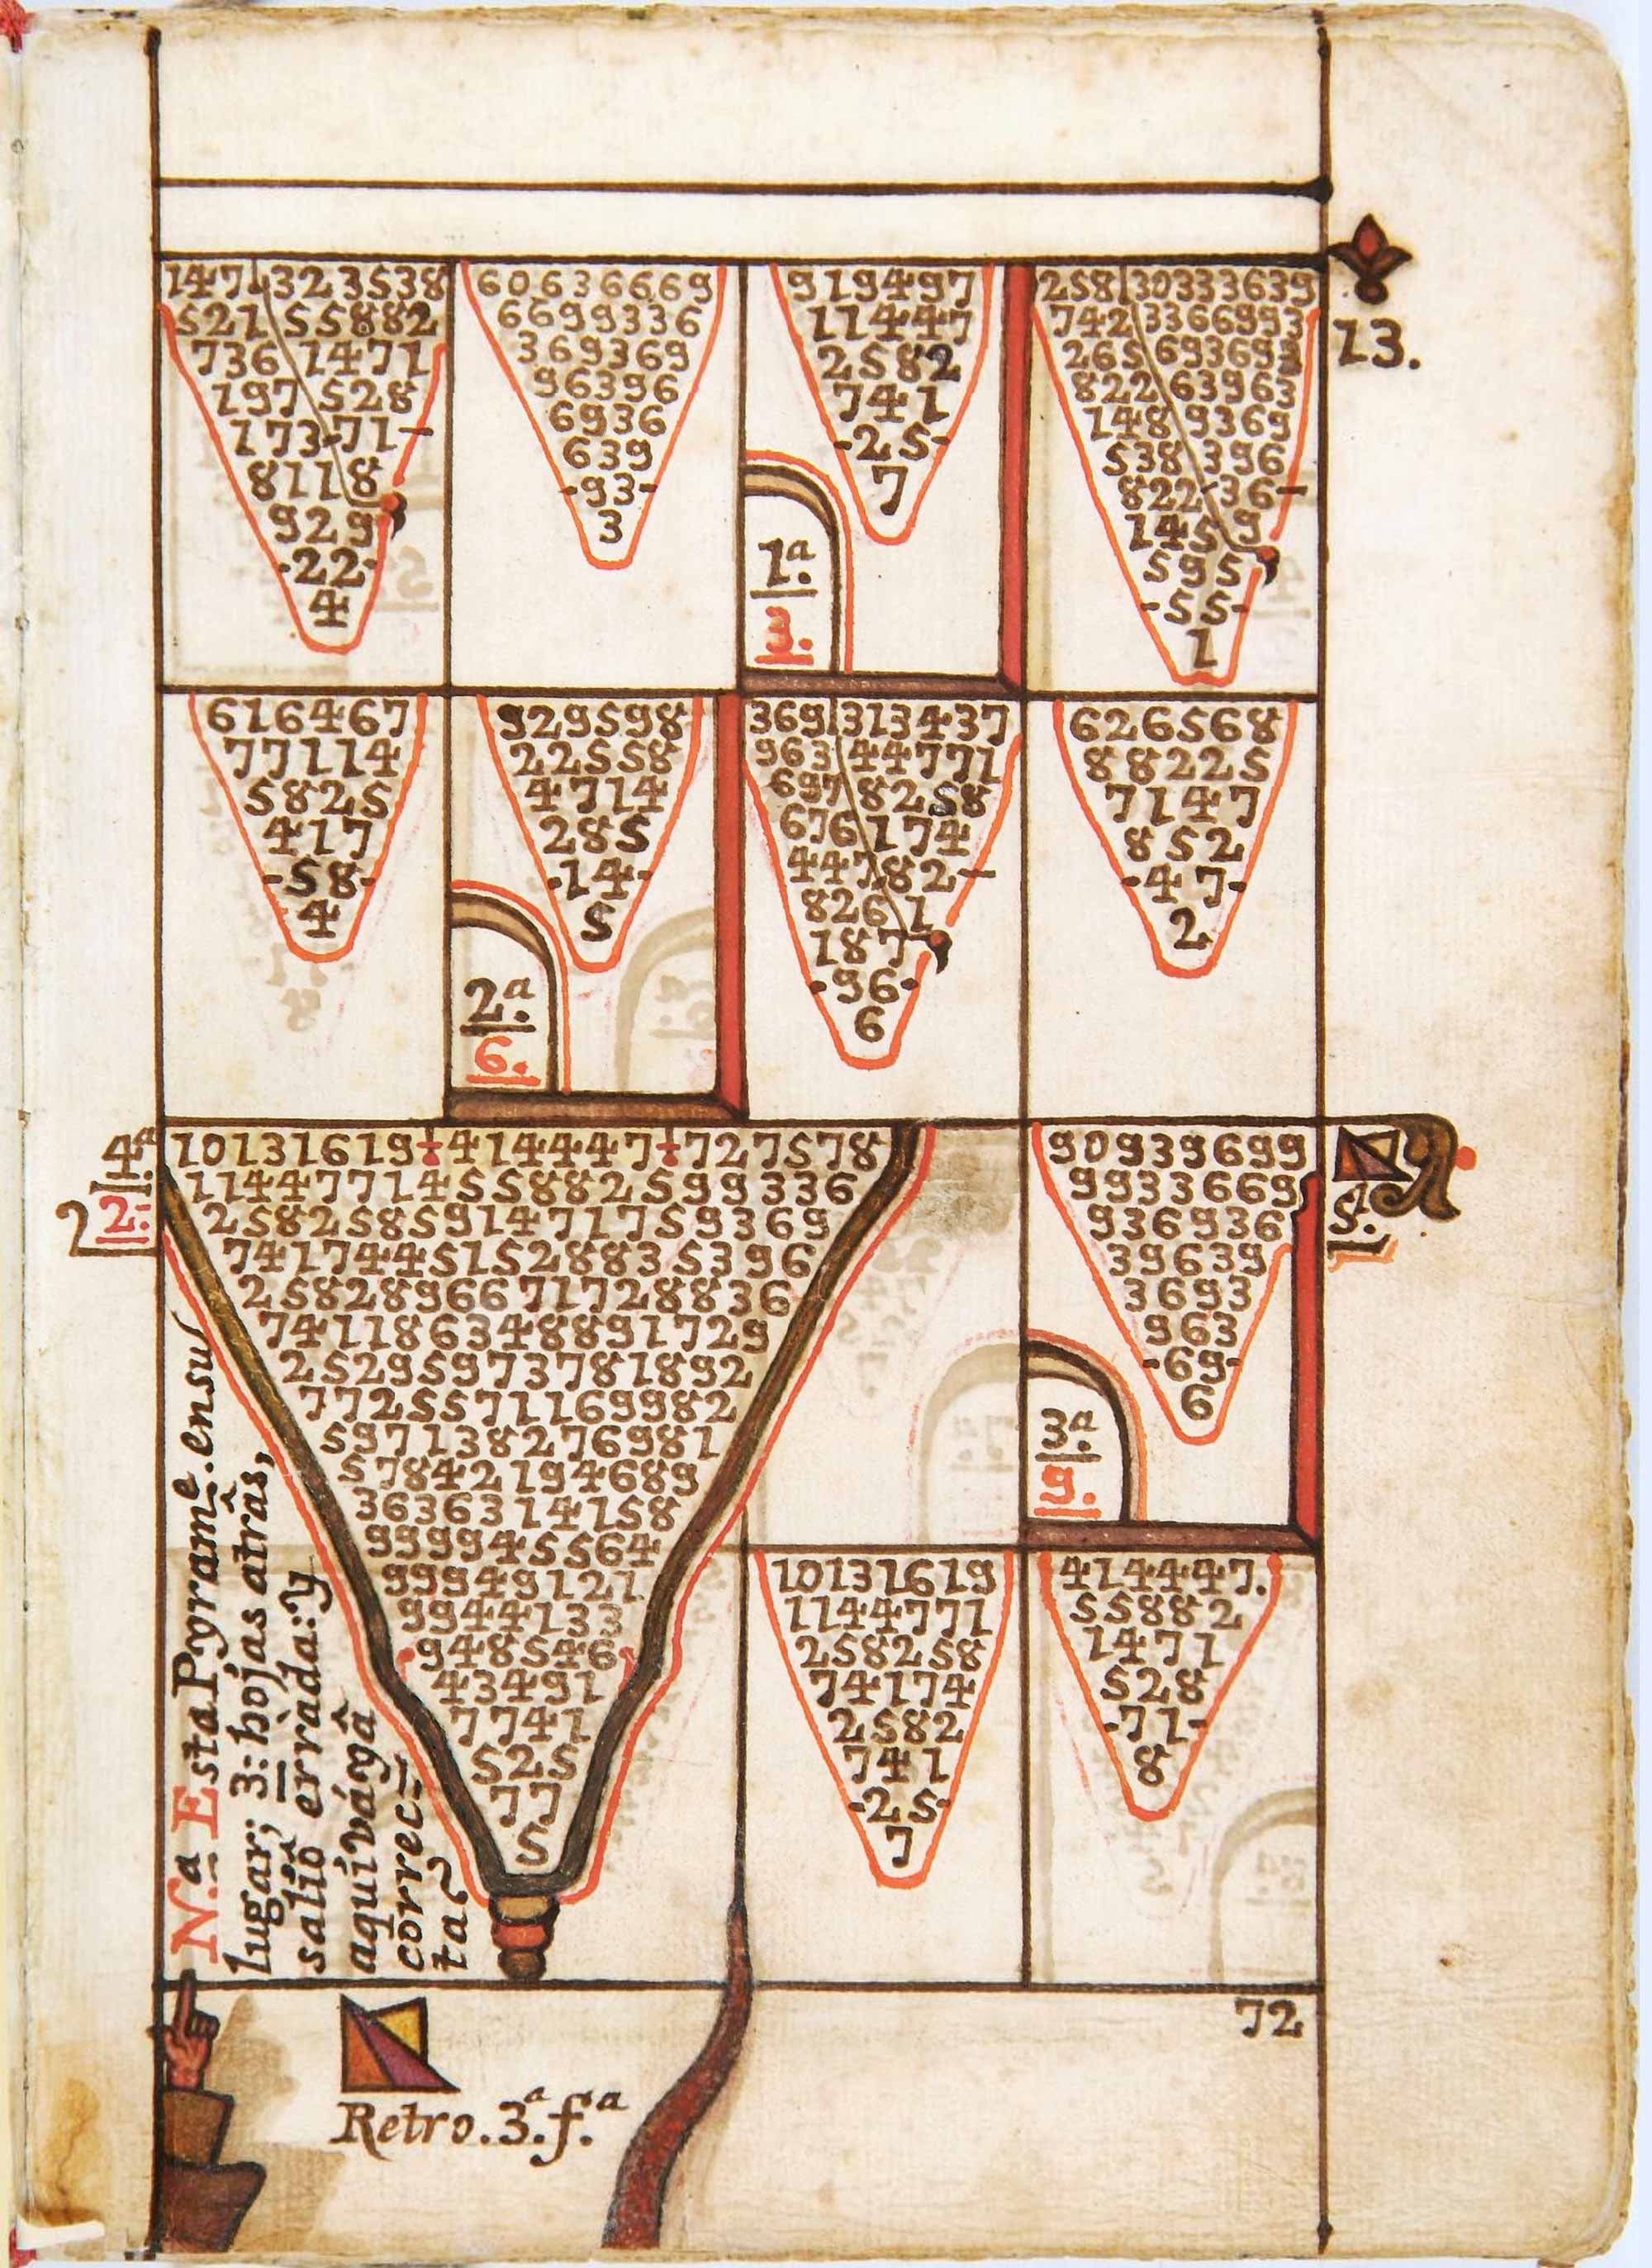 13.
147|323538
521 55882
736 1471
197 528
173-71-
8118
929
-22-
4
60636669
6699336
369369
96396
6936
639
-93-
3
919497
11447
2582
741
-25-
7
1ª.
3.
258|30333639
742 3366993
265 693693
822 63963
148 9369
538 396
822 36-
145 9
595
-55-
1
616467
77114
5825
417
-58-
4
929598
22558
4714
285
-14-
5
2ª.
6.
369|313437
963 44771
697 8258
676 174
447 82-
826 1
187
-96-
6
626568
88225
7147
852
-47-
2
4ª.
2:
10131619+414447+727578
1144771455882599336
258258591471759369
74174451528835396
2582896671728836
741186348891729
25295973781892
7725571169982
597138276981
57842194689
3636314158
999945564
99949121
9944133
948546
43491
7741
525
77
5
90939699
9933669
936936
39639
3693
963
-69-
6
3ª.
9.
5.
10131619
1144771
258258
74174
2582
741
-25-
7
414447.
55882
1471
528
-71-
8
N.ª Esta Pyramᵉ. ensu
lugar; 3: hojas atrâs,
saliô errada: y
aquivágâ
correc-
ta
72
Retro. 3.ª f.ª